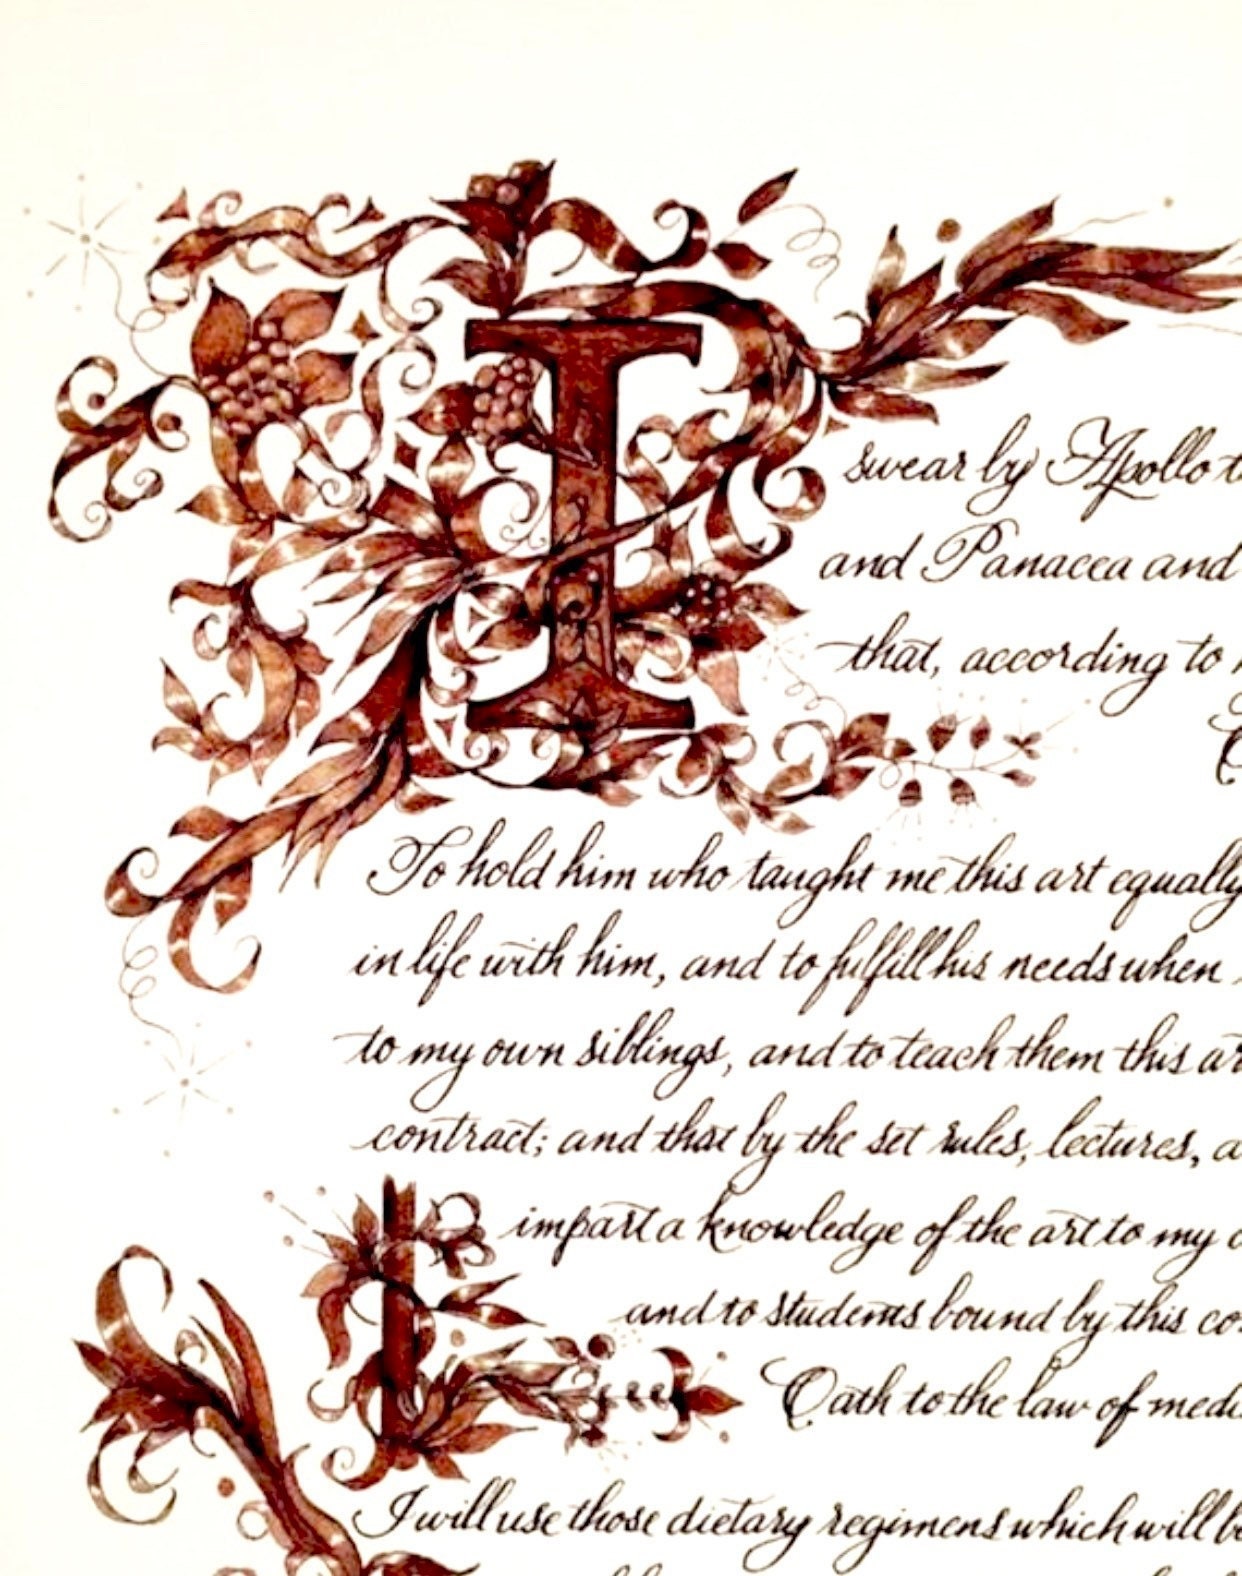 I
swear by Apollo
and Panacea and
that, according to
To hold him who taught me this art equally
in life with him, and to fulfill his needs when
to my own siblings, and to teach them this
contract; and that by the set rules, lectures,
I impart a knowledge of the art to my
and to students bound by this
Oath to the law of
I will use those dietary regimens which will